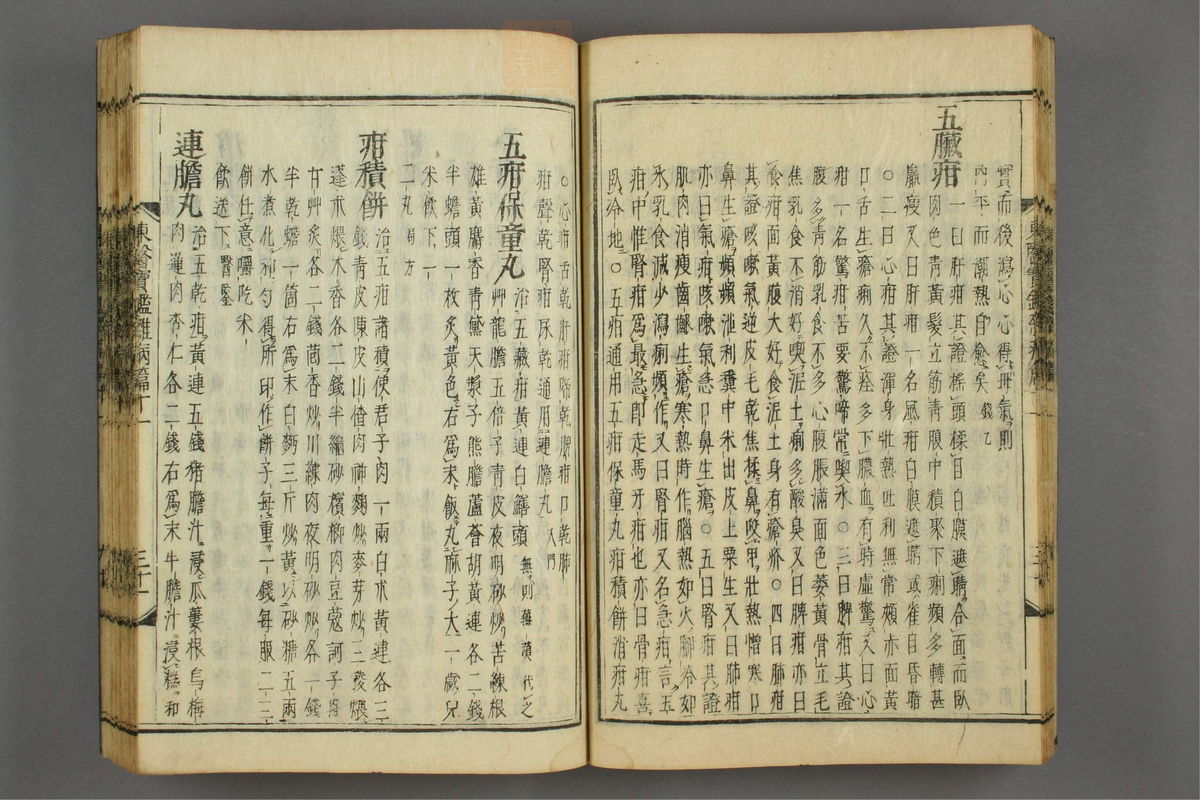 實而後瀉心心得母氣則
內平而潮熱自愈矣 錢乙
五臟疳
一曰肝疳其證搖頭揉目白膜遮睛合面而臥
肉色青黃髮立筋青腹中積聚下痢頻多轉甚
羸瘦又曰肝疳一名風疳白膜遮睛或雀目昏暗
○二曰心疳其證渾身壯熱吐利無常頰赤面黃
口舌生瘡痢久不痊多下膿血有時虛驚又曰心
疳一名驚疳苦要驚啼常喫水○三曰脾疳其證
腹多青筋乳食不多心腹脹滿面色萎黃骨立毛
焦乳食不消好喫泥土痢多酸臭又曰脾疳亦曰
食疳面黃腹大好食泥土身有瘡疥○四曰肺疳
其證咳嗽氣逆皮毛乾焦揉鼻咬甲壯熱憎寒口
鼻生瘡頻頻泄利糞中米出皮上粟生又曰肺疳
亦曰氣疳咳嗽氣急口鼻生瘡○五曰腎疳其證
肌肉消瘦齒齦生瘡寒熱時作腦熱如火脚冷如
氷乳食減少瀉痢頻作又曰腎疳又名急疳言五
疳中惟腎疳爲最急卽走馬牙疳也亦曰骨疳喜
臥冷地○五疳通用五疳保童丸疳積餠消疳丸
○心疳舌乾肝疳啼乾脾疳口乾肺
疳聲乾腎疳尿乾通用連膽丸 入門
五疳保童丸
治五藏疳黃連白鱔頭 無則蕪荑代之
艸龍膽五倍子青皮夜明砂炒苦練根
雄黃麝香青黛天漿子熊膽蘆薈胡黃連各二錢
半蟾頭一枚炙黃色右爲末飯丸麻子大一歲兒
米飮下一
二丸 局方
疳積餠
治五疳諸積使君子肉一兩白朮黃連各三
錢青皮陳皮山楂肉神麴炒麥芽炒三稜煨
蓬朮煨木香各二錢半縮砂檳榔肉豆蔻訶子
甘艸炙各二錢茴香炒川練肉夜明砂炒各一錢
半乾蟾一箇右爲末白麪三斤炒黃以砂糖五兩
水煮化和勻得所印作餠子每重一錢每服二三
餠任意嚼吃米
飮送下 醫鑒
連膽丸
治五乾疳黃連五錢猪膽汁浸瓜蔞根烏梅
肉蓮肉杏仁各二錢右爲末牛膽汁浸糕和
東醫寶鑑雜病篇十一
三十一